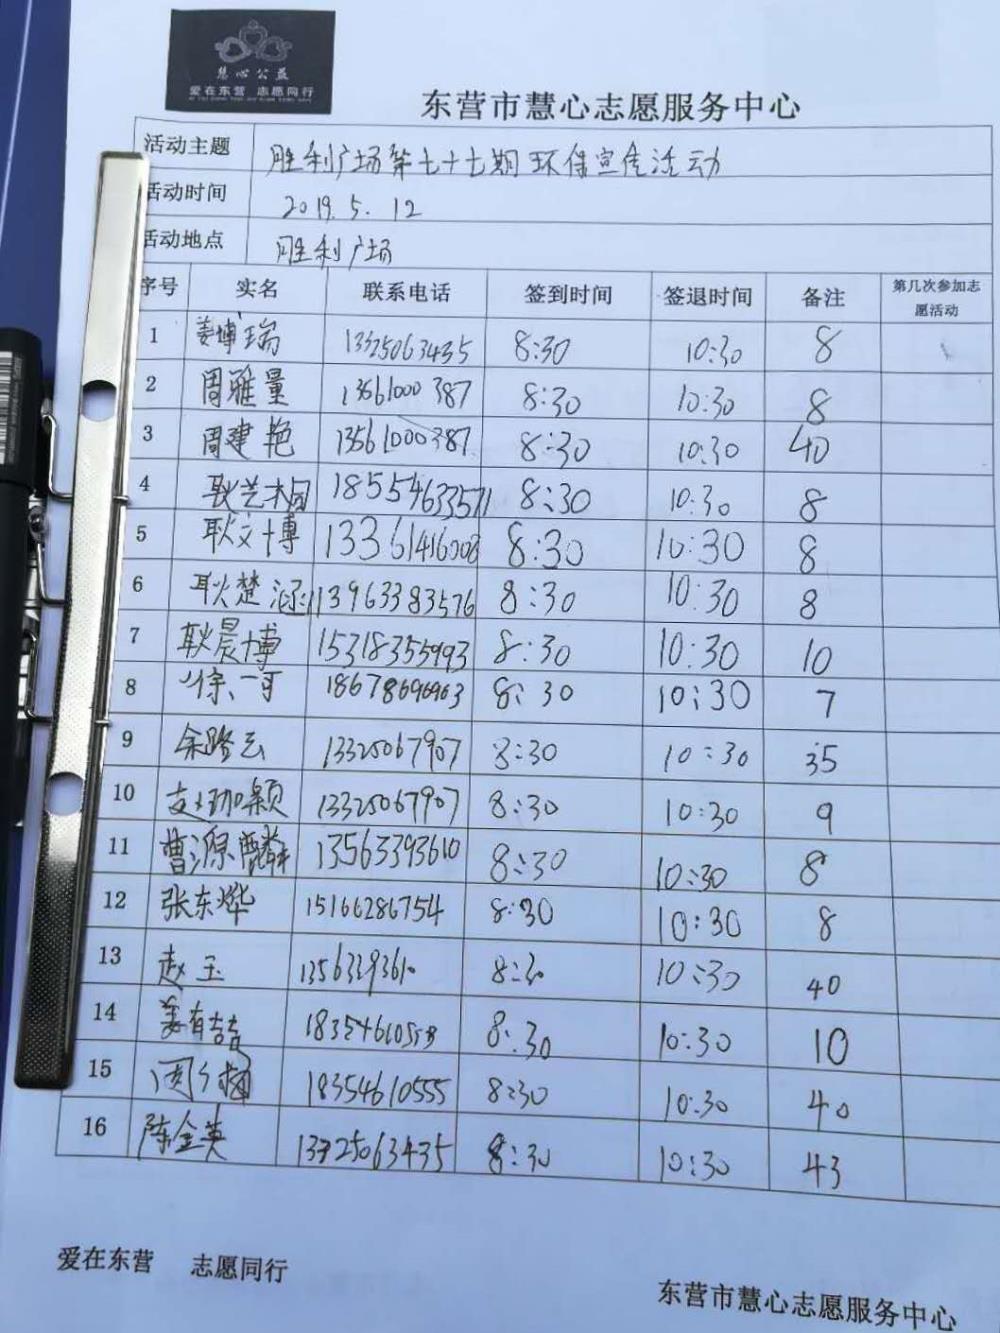 慧心公益
爱在东营 志愿同行
东营市慧心志愿服务中心
活动主题 胜利广场第七十七期环保宣传活动
活动时间 2019.5.12
活动地点 胜利广场
序号 实名 联系电话 签到时间 签退时间 备注 第几次参加志愿活动
1 姜博瑞 13325063435 8:30 10:30 8
2 周雅量 13561000387 8:30 10:30 8
3 周建艳 13561000387 8:30 10:30 40
4 耿艺 18554633571 8:30 10:30 8
5 耿文博 13361416008 8:30 10:30 8
6 耿楚涵 13963383576 8:30 10:30 8
7 耿晨博 15318355993 8:30 10:30 10
8 徐一可 18678696963 8:30 10:30 7
9 余路云 13325067907 8:30 10:30 35
10 颖 13325067907 8:30 10:30 9
11 曹源麟 13563393610 8:30 10:30 8
12 张东烨 15166286754 8:30 10:30 8
13 赵玉 13563393610 8:30 10:30 40
14 姜有喆 8:30 10:30 10
15 18354610555 8:30 10:30 40
16 陈金英 13325063435 8:30 10:30 43
爱在东营 志愿同行
东营市慧心志愿服务中心